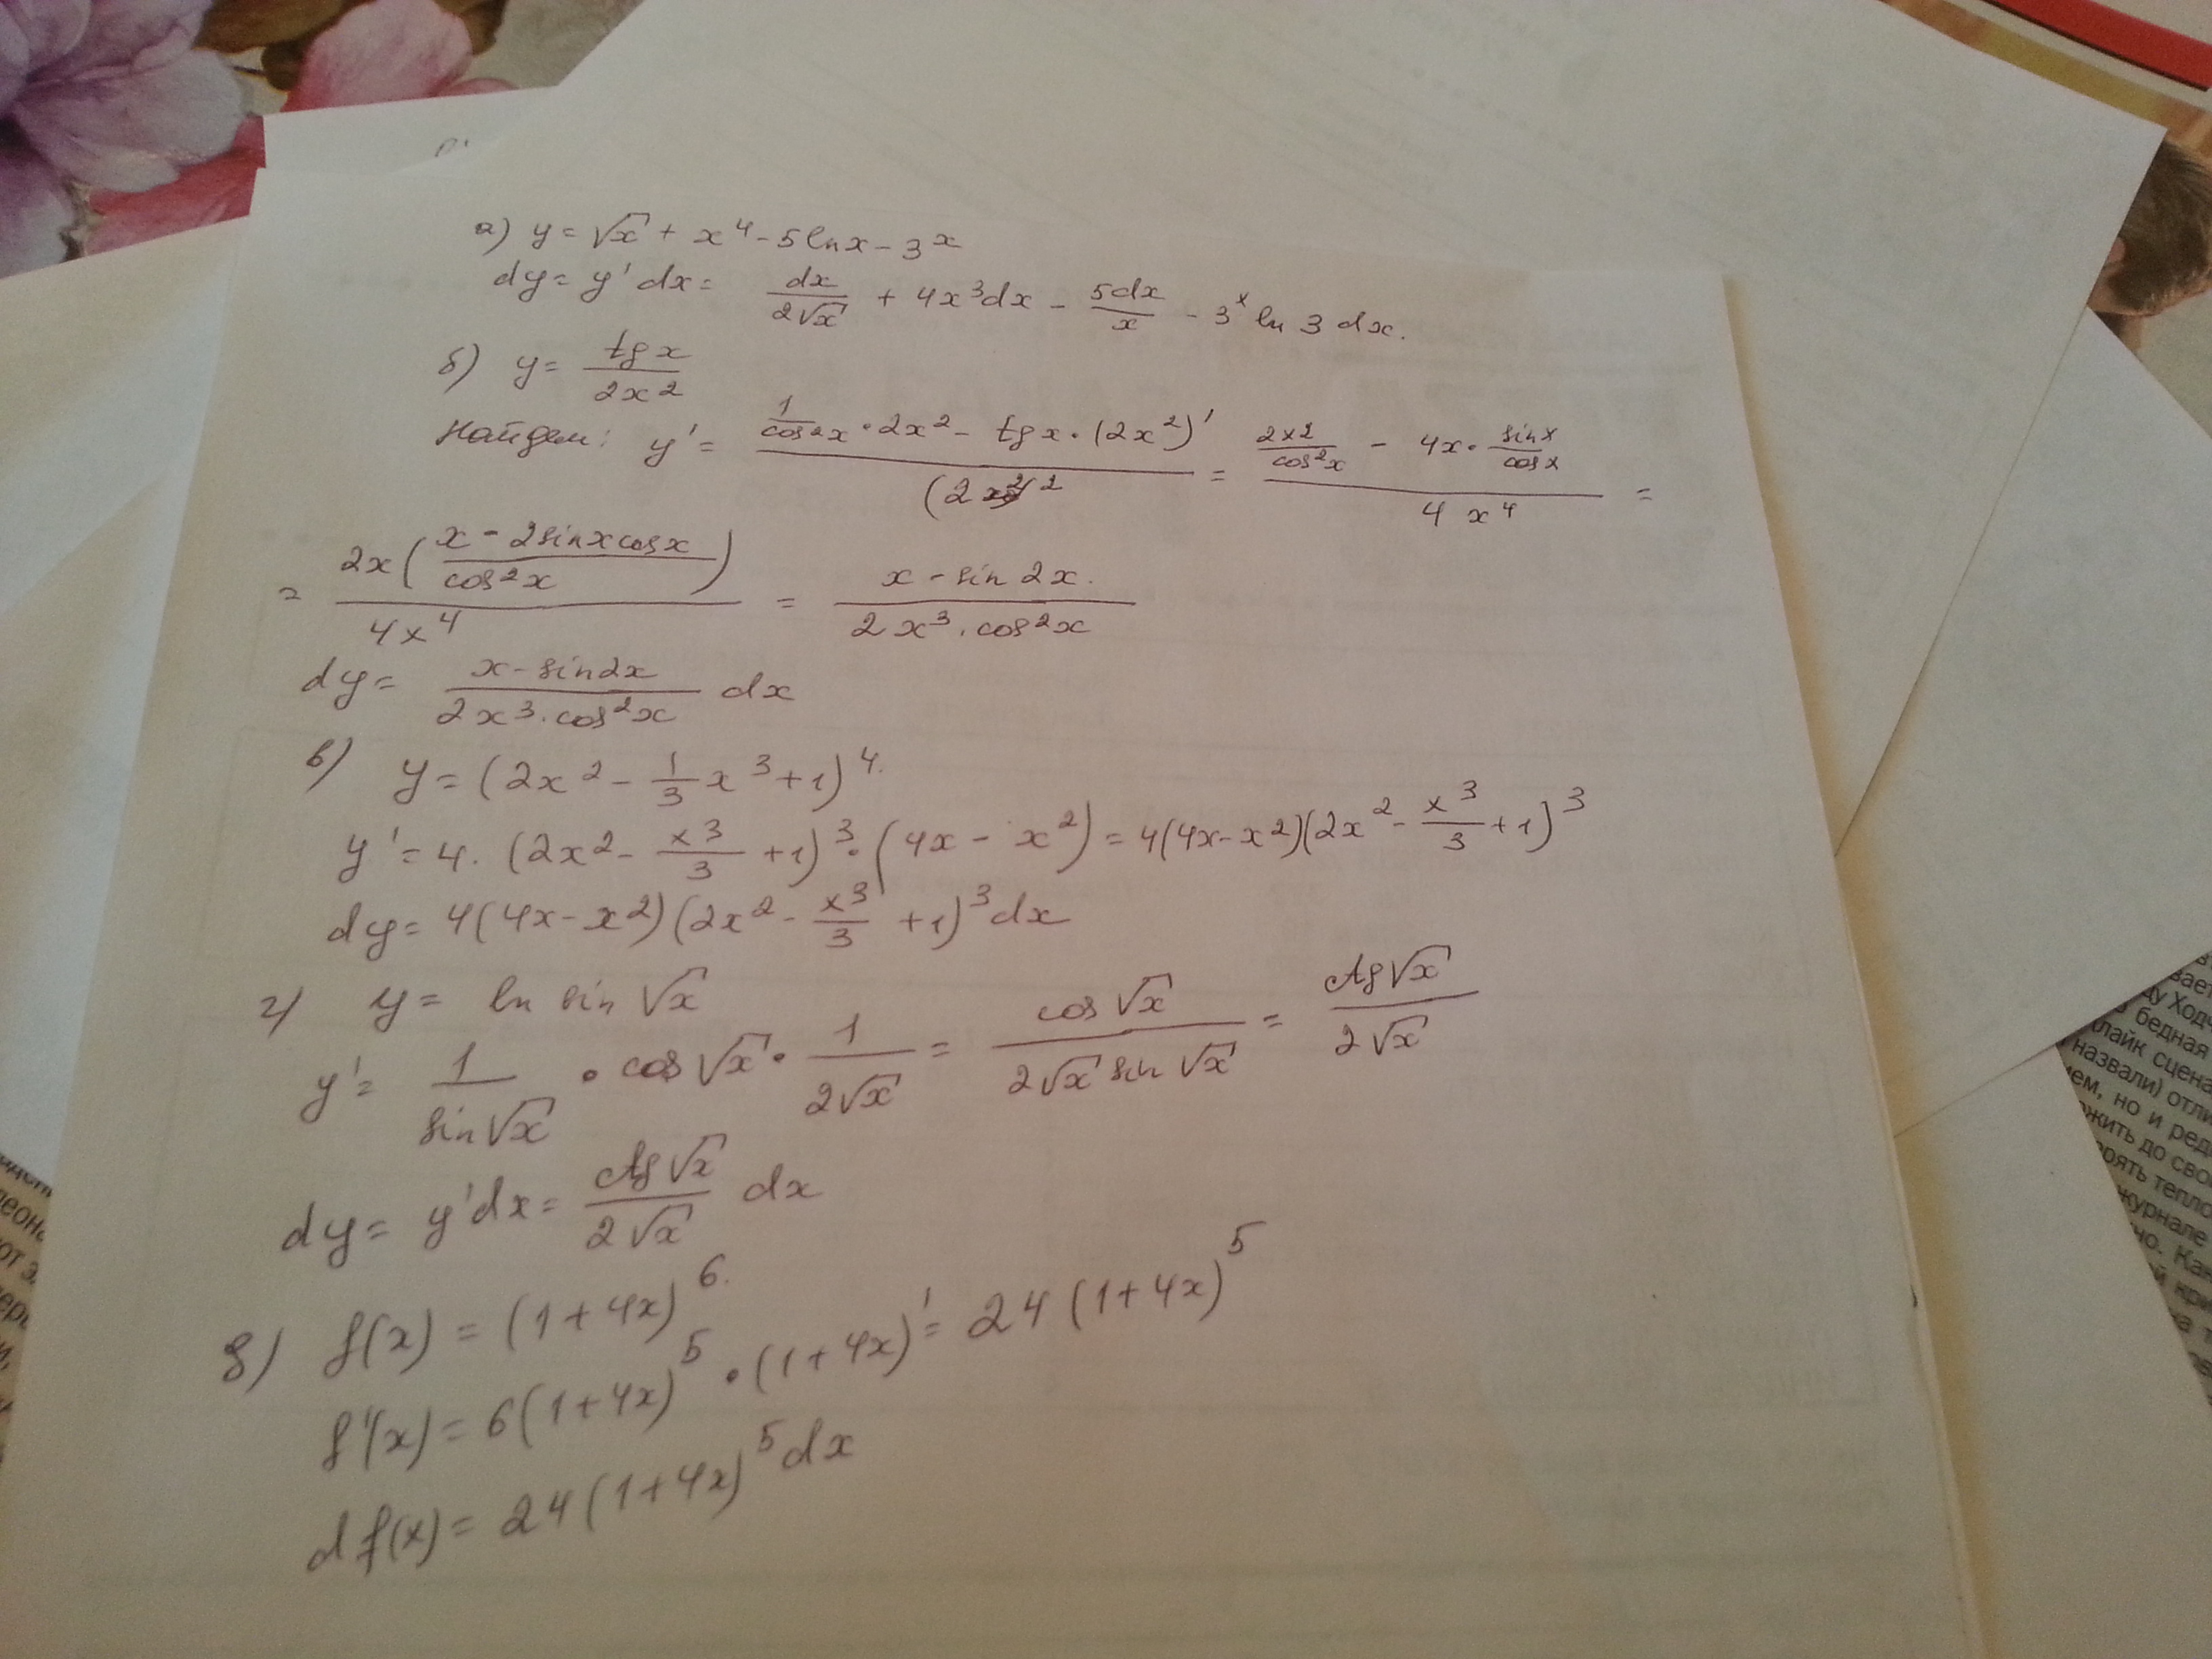 а) y = √x + x⁴ - 5 ln x - 3ˣ
dy = y' dx = dx/(2√x) + 4x³dx - 5dx/x - 3ˣ ln 3 dx.
б) y = tg x/(2x²)
Найдем: y' = (1/cos²x · 2x² - tg x · (2x²)')/(2x²)² = (2x²/cos²x - 4x · sin x/cos x)/(4x⁴) =
= 2x((x - 2sin x cos x)/cos²x)/(4x⁴) = (x - sin 2x.)/(2x³ · cos²x)
dy = (x - sin 2x)/(2x³ · cos²x) dx
в) y = (2x² - 1/3 x³ + 1)⁴.
y' = 4 · (2x² - x³/3 + 1)³ · (4x - x²) = 4(4x - x²)(2x² - x³/3 + 1)³
dy = 4(4x - x²)(2x² - x³/3 + 1)³dx
г) y = ln sin √x
y' = 1/(sin √x) · cos √x · 1/(2√x) = cos √x/(2√x sin √x) = ctg √x/(2√x)
dy = y'dx = ctg √x/(2√x) dx
д) f(x) = (1 + 4x)⁶.
f'(x) = 6(1 + 4x)⁵ · (1 + 4x)' = 24(1 + 4x)⁵
df(x) = 24(1 + 4x)⁵dx
бедная
назвали)
но и